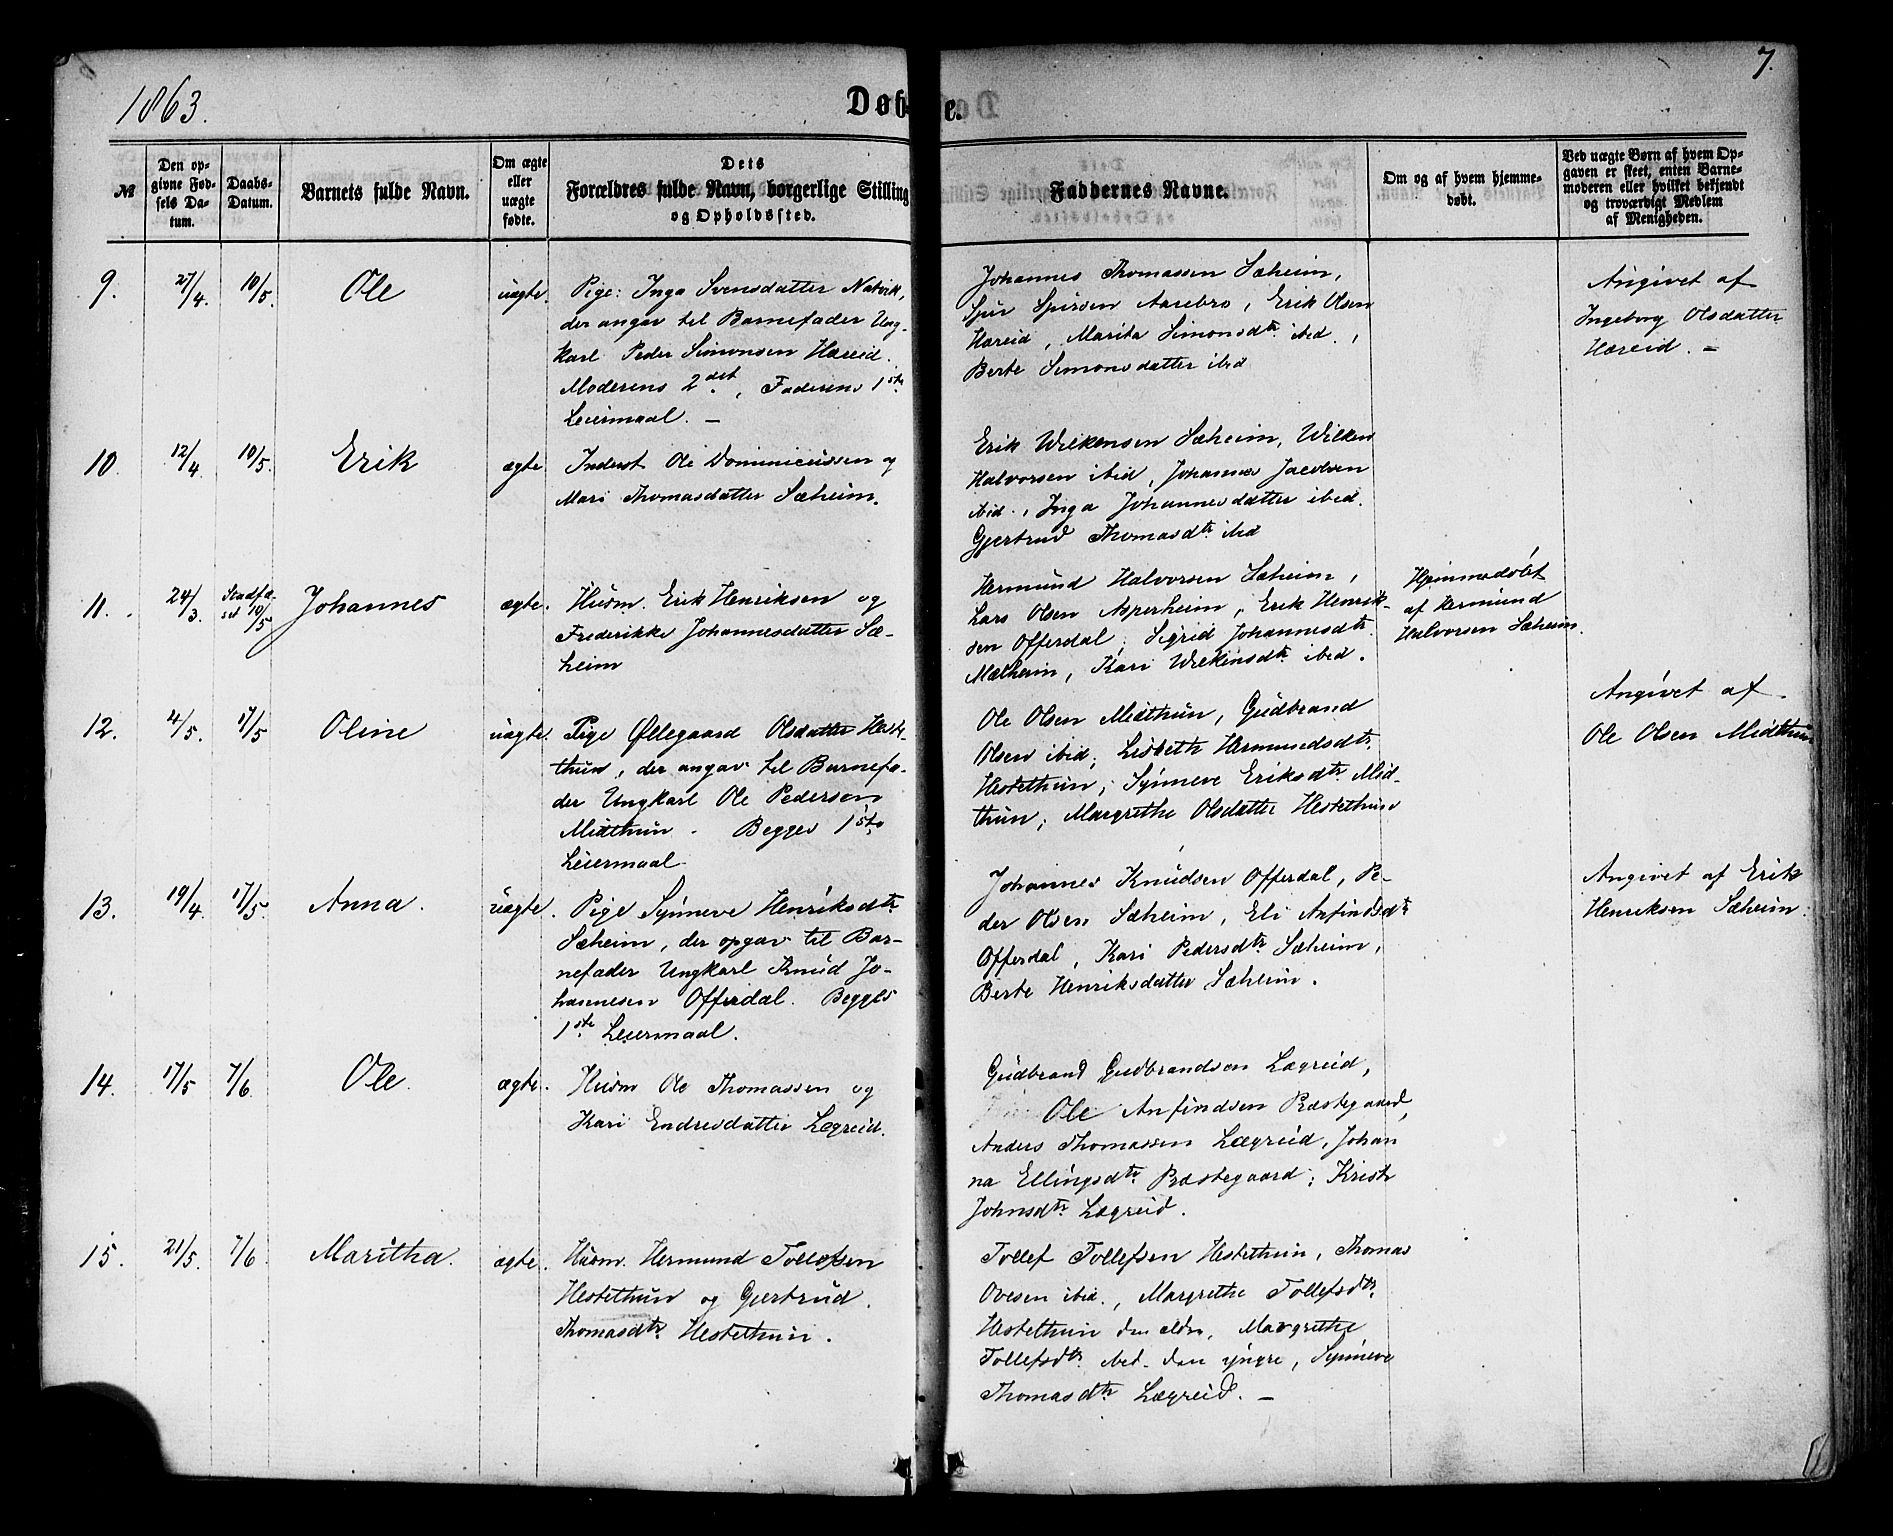 1863.
Døbte.
7.
№
Den op-
givne Fød-
sels Da-
tum.
Daabs-
Datum.
Barnets fulde Navn.
Om ægte
eller
uægte
fødte.
Dets
Forældres fulde Navn, borgerlige Stilling
og Opholdssted.
Faddernes Navne.
Om og af hvem hjemme-
døbt.
Ved uægte Børn af hvem Op-
gaven er skeet, enten Barne-
moderen eller hvilket bekjendt
og troværdigt Medlem
af Menigheden.
9.
27/4.
10/5.
Ole
uægte.
Pige: Inga Svensdatter Natvik,
der angav til Barnefader Ung-
karl Peder Simonsen Hæreid.
Moderens 2det, Faderens 1ste
Leiermaal. —
Johannes Thomassen Sæheim,
Sjur Sjursen Aarebro, Erik Olsen
Hæreid, Marita Simonsdtr ibid.,
Berte Simonsdatter ibid
Angivet af
Ingeborg Olsdatter
Hæreid. —
10.
12/4.
10/5.
Erik
ægte.
Inderst Ole Dominicussen og
Mari Thomasdatter Sæheim.
Erik Wilkensen Sæheim, Wilken
Halvorsen ibid, Johannes Jacobsen
ibid., Inga Johannesdatter ibid.
Gjertrud Thomasdtr ibid
11.
24/3.
Stadfæ-
stet 10/5
Johannes
ægte.
Huusm. Erik Henriksen og
Frederikke Johannesdatter Sæ-
heim
Hermund Halvorsen Sæheim,
Lars Olsen Asperheim, Erik Henrik-
sen Offerdal, Sigrid Johannesdtr
Mælheim, Kari Wilkinsdtr ibid.
Hjemmedøbt
af Hermund
Halvorsen Sæheim.
12.
4/5.
17/5
Oline
uægte.
Pige Øllegaard Olsdatter Heste-
thun, der angav til Barnefa-
der Ungkarl Ole Pedersen
Midthun. Begges 1ste
Leiermaal
Ole Olsen Midthun, Gudbrand
Olsen ibid; Lisbeth Hermundsdtr
Hestethun; Synneve Eriksdtr Mid-
thun; Margrethe Olsdatter Hestethun
Angivet af
Ole Olsen Midthun
13.
19/4.
17/5.
Anna.
uægte.
Pige Synneve Henriksdtr
Sæheim, der opgav til Bar-
nefader Ungkarl Knud Jo-
hannesen Offerdal. Begges
1ste Leiermaal.
Johannes Knudsen Offerdal, Pe-
der Olsen Sæheim, Eli Anfindsdtr
Offerdal, Kari Pedersdtr Sæheim,
Berte Henriksdatter Sæheim.
Angivet af Erik
Henriksen Sæheim.
14.
17/5
7/6.
Ole.
ægte.
Huusm Ole Thomassen og
Kari Endresdatter Lægreid.
Gudbrand Gudbrandsen Lægreid,
Ole Anfindsen Præstegaard,
Anders Thomassen Lægreid, Johan
na Ellingsdtr Præstegaard; Kristi
Johnsdtr Lægreid.
15.
21/5.
7/6.
Maritha.
ægte.
Huusm. Hermund Tollefsen
Hestethun og Gjertrud
Thomasdtr Hestethun.
Tollef Tollefsen Hestethun, Thomas
Ovesen ibid., Margrethe Tollefsdtr
Hestethun den ældre, Margrethe
Tollefsdtr ibid. den yngre, Synneve
Thomasdtr Lægreid. —